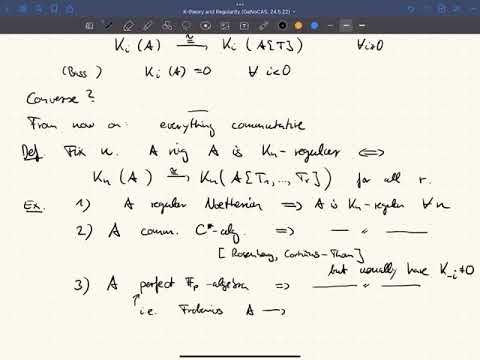 K-theory and Regularity (GeNoCAS, 24.5.22)
K_i (A) ≅→ K_i (A[T]) ∀ i≥0
(Bass) K_i (A) = 0 ∀ i<0
Converse?
From now on: everything commutative
Def. Fix n. A ring A is K_n-regular ⟺
K_n (A) ≅→ K_n (A[T_1, ..., T_r]) for all r.
Ex. 1) A regular Noetherian ⟹ A is K_n-regular ∀ n
2) A comm. C*-alg. ⟹ — " —
[Rosenberg, Cortiñas-Thom]
but usually have K_{-i} ≠ 0
3) A perfect F_p-algebra ⟹ — " —
↑ i.e. Frobenius A →